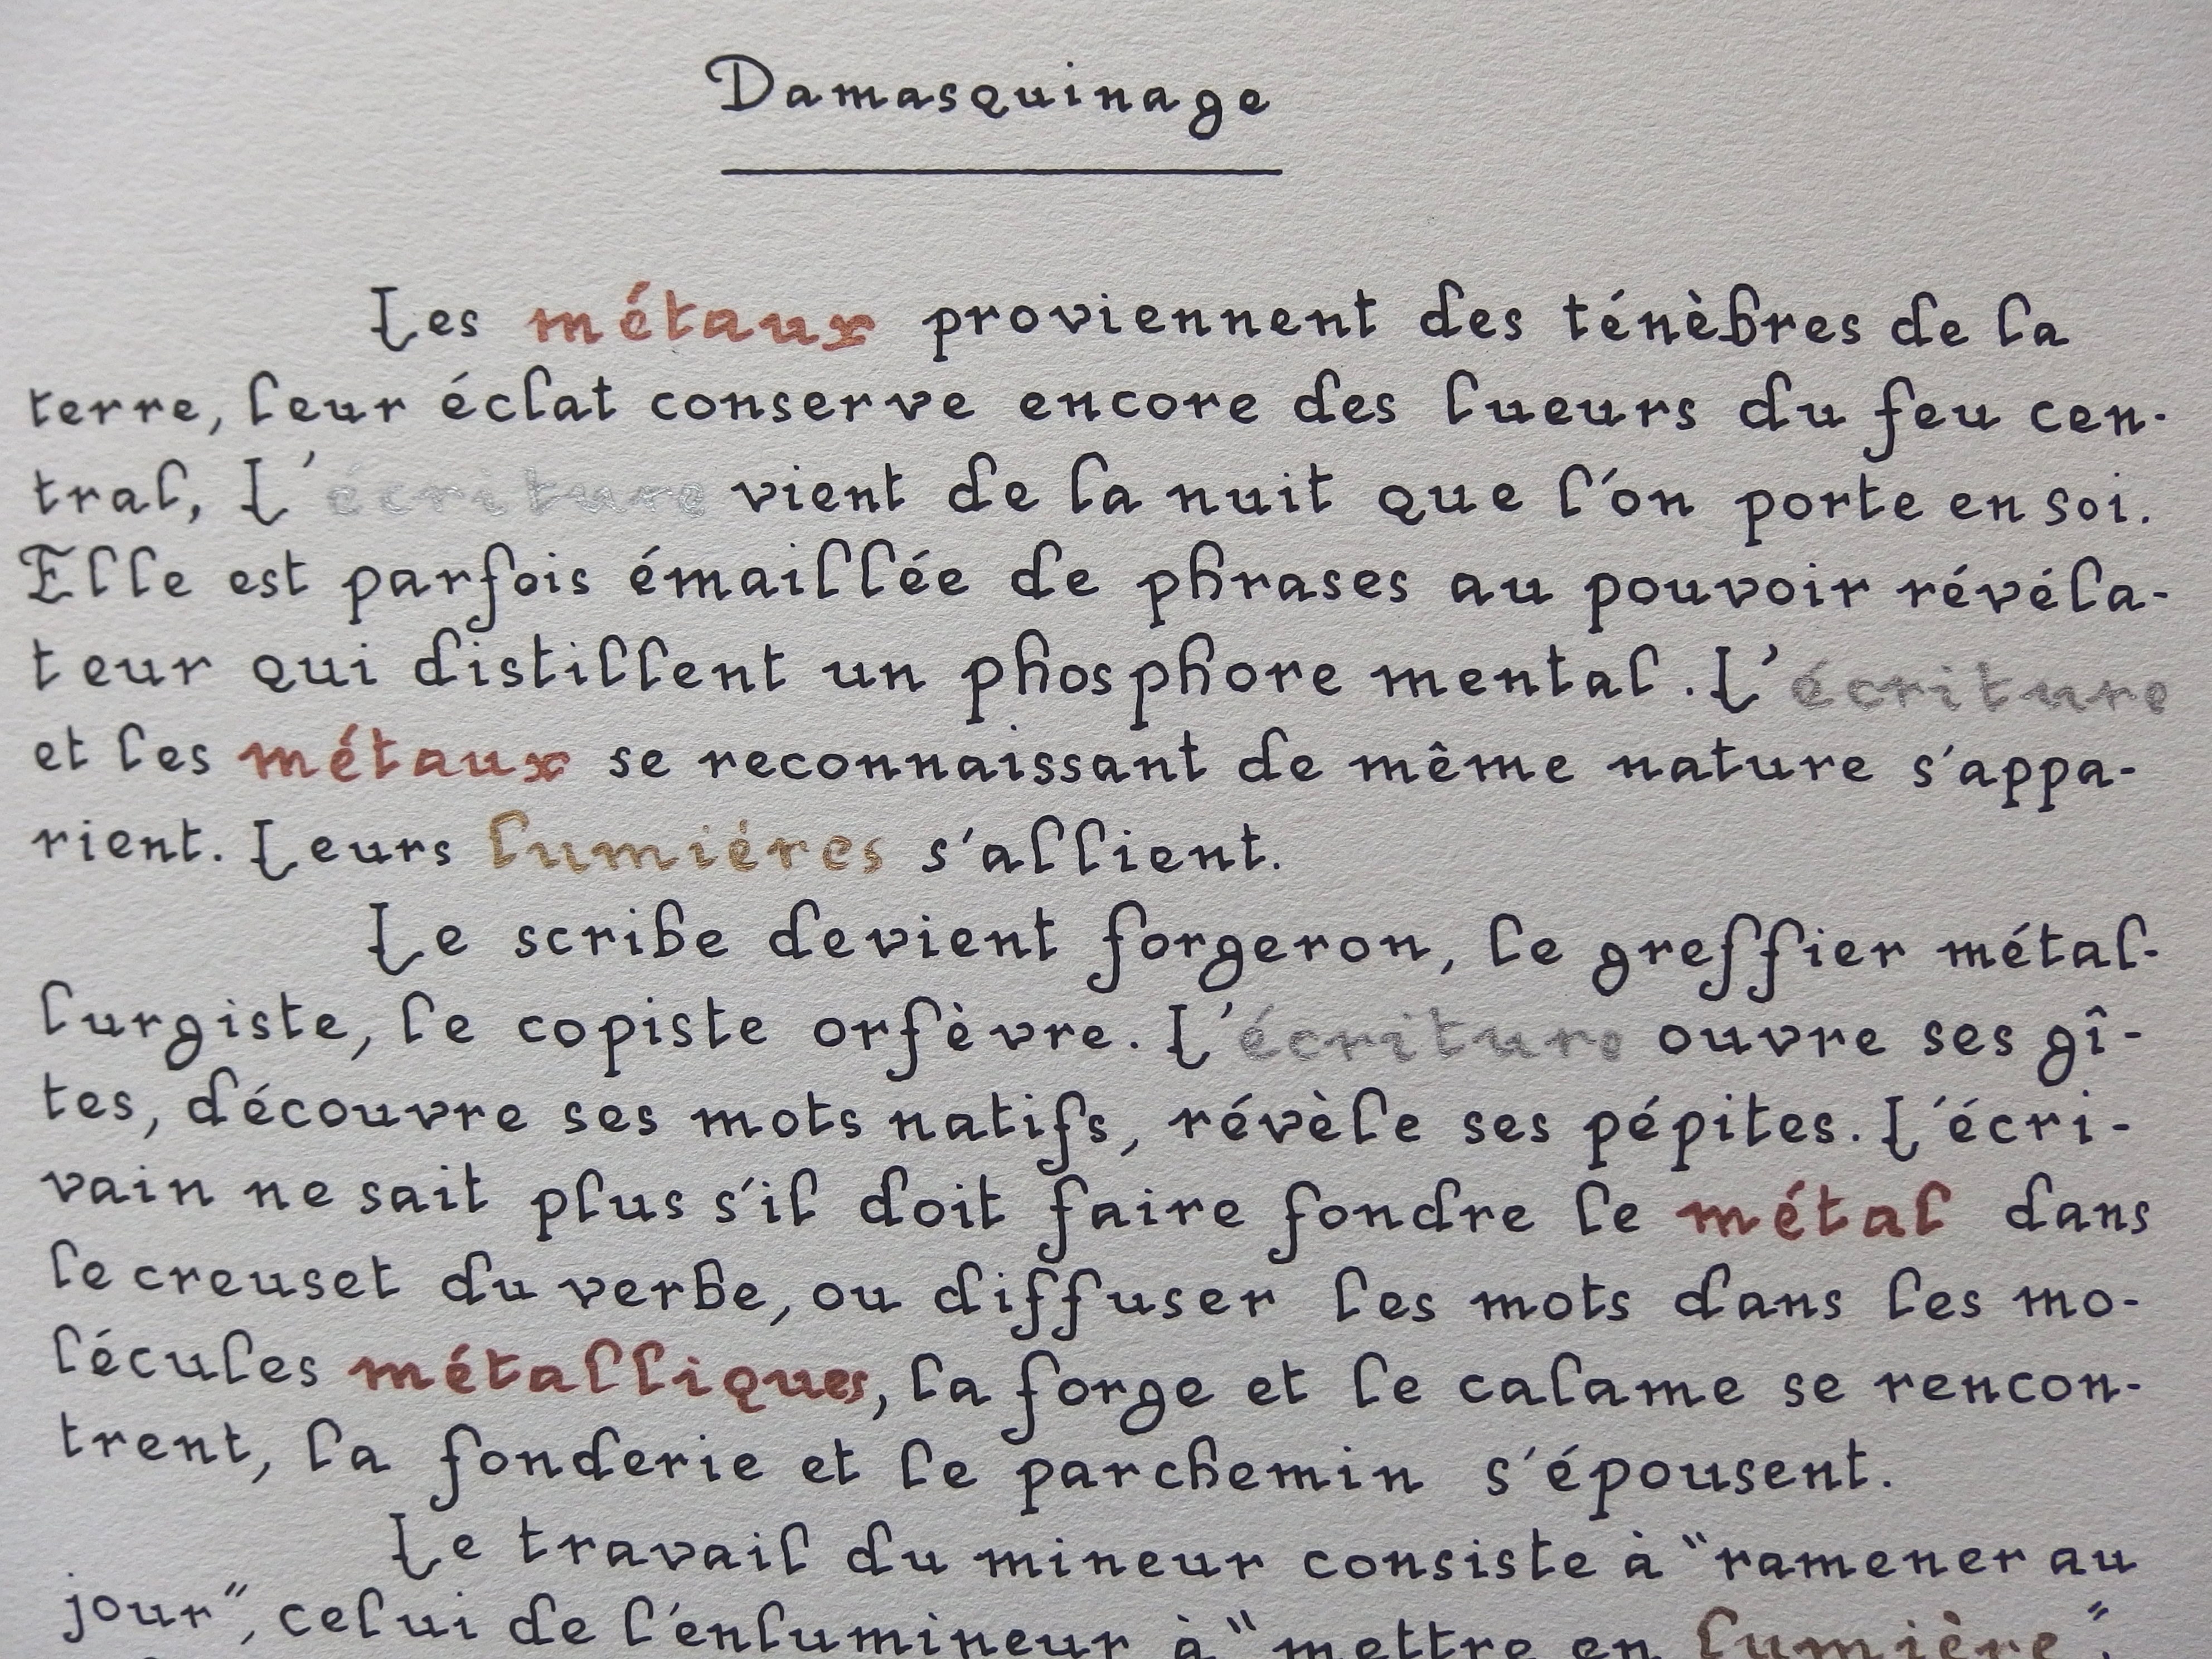 Damasquinage
Les métaux proviennent des ténèbres de la
terre, leur éclat conserve encore des lueurs du feu cen-
tral, L'écriture vient de la nuit que l'on porte en soi.
Elle est parfois émaillée de phrases au pouvoir révéla-
teur qui distillent un phosphore mental. L'écriture
et les métaux se reconnaissant de même nature s'appa-
rient. Leurs lumiéres s'allient.
Le scribe devient forgeron, le greffier métal-
lurgiste, le copiste orfèvre. L'écriture ouvre ses gî-
tes, découvre ses mots natifs, révèle ses pépites. L'écri-
vain ne sait plus s'il doit faire fondre le métal dans
le creuset du verbe, ou diffuser les mots dans les mo-
lécules métalliques, la forge et le calame se rencon-
trent, la fonderie et le parchemin s'épousent.
Le travail du mineur consiste à "ramener au
jour", celui de l'enlumineur à "mettre en lumière".